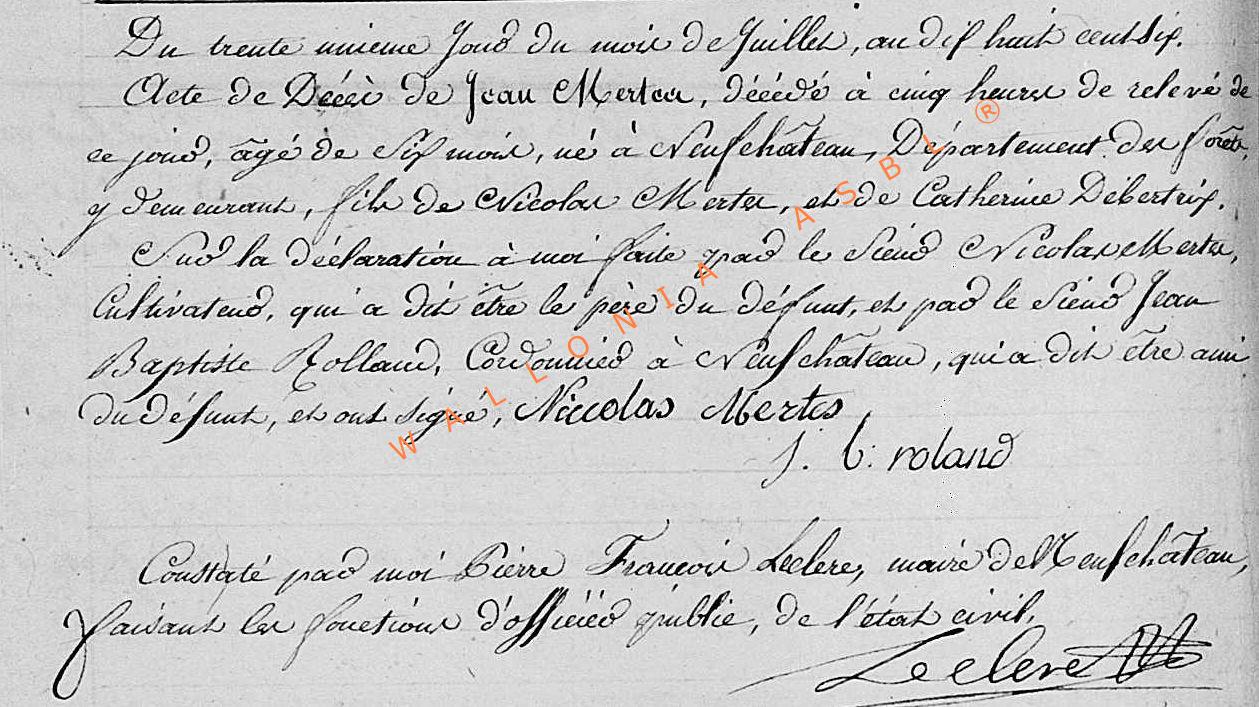 Du trente unieme Jour du mois de Juillet, an dix huit cent six.
Acte de Décès de Jean Mertes, décédé à cinq heures de relevé de
ce jour, âgé de Six mois, né à Neufchâteau, Département des forêts,
y demeurant, fils de Nicolas Mertes, et de Catherine Debertrix.
Sur la déclaration à moi faite par le Sieur Nicolas Mertes,
Cultivateur, qui a dit être le père du défunt, et par le Sieur Jean
Baptiste Rolland, Cordonnier à Neufchâteau, qui a dit être ami
du défunt, et ont signé, Niccolas Mertes
j. b. roland
Constaté par moi Pierre François Leclere, maire de Neufchâteau,
faisant les fonctions d'officier public, de l'état civil.
Leclere
WALLONIA ASBL ®